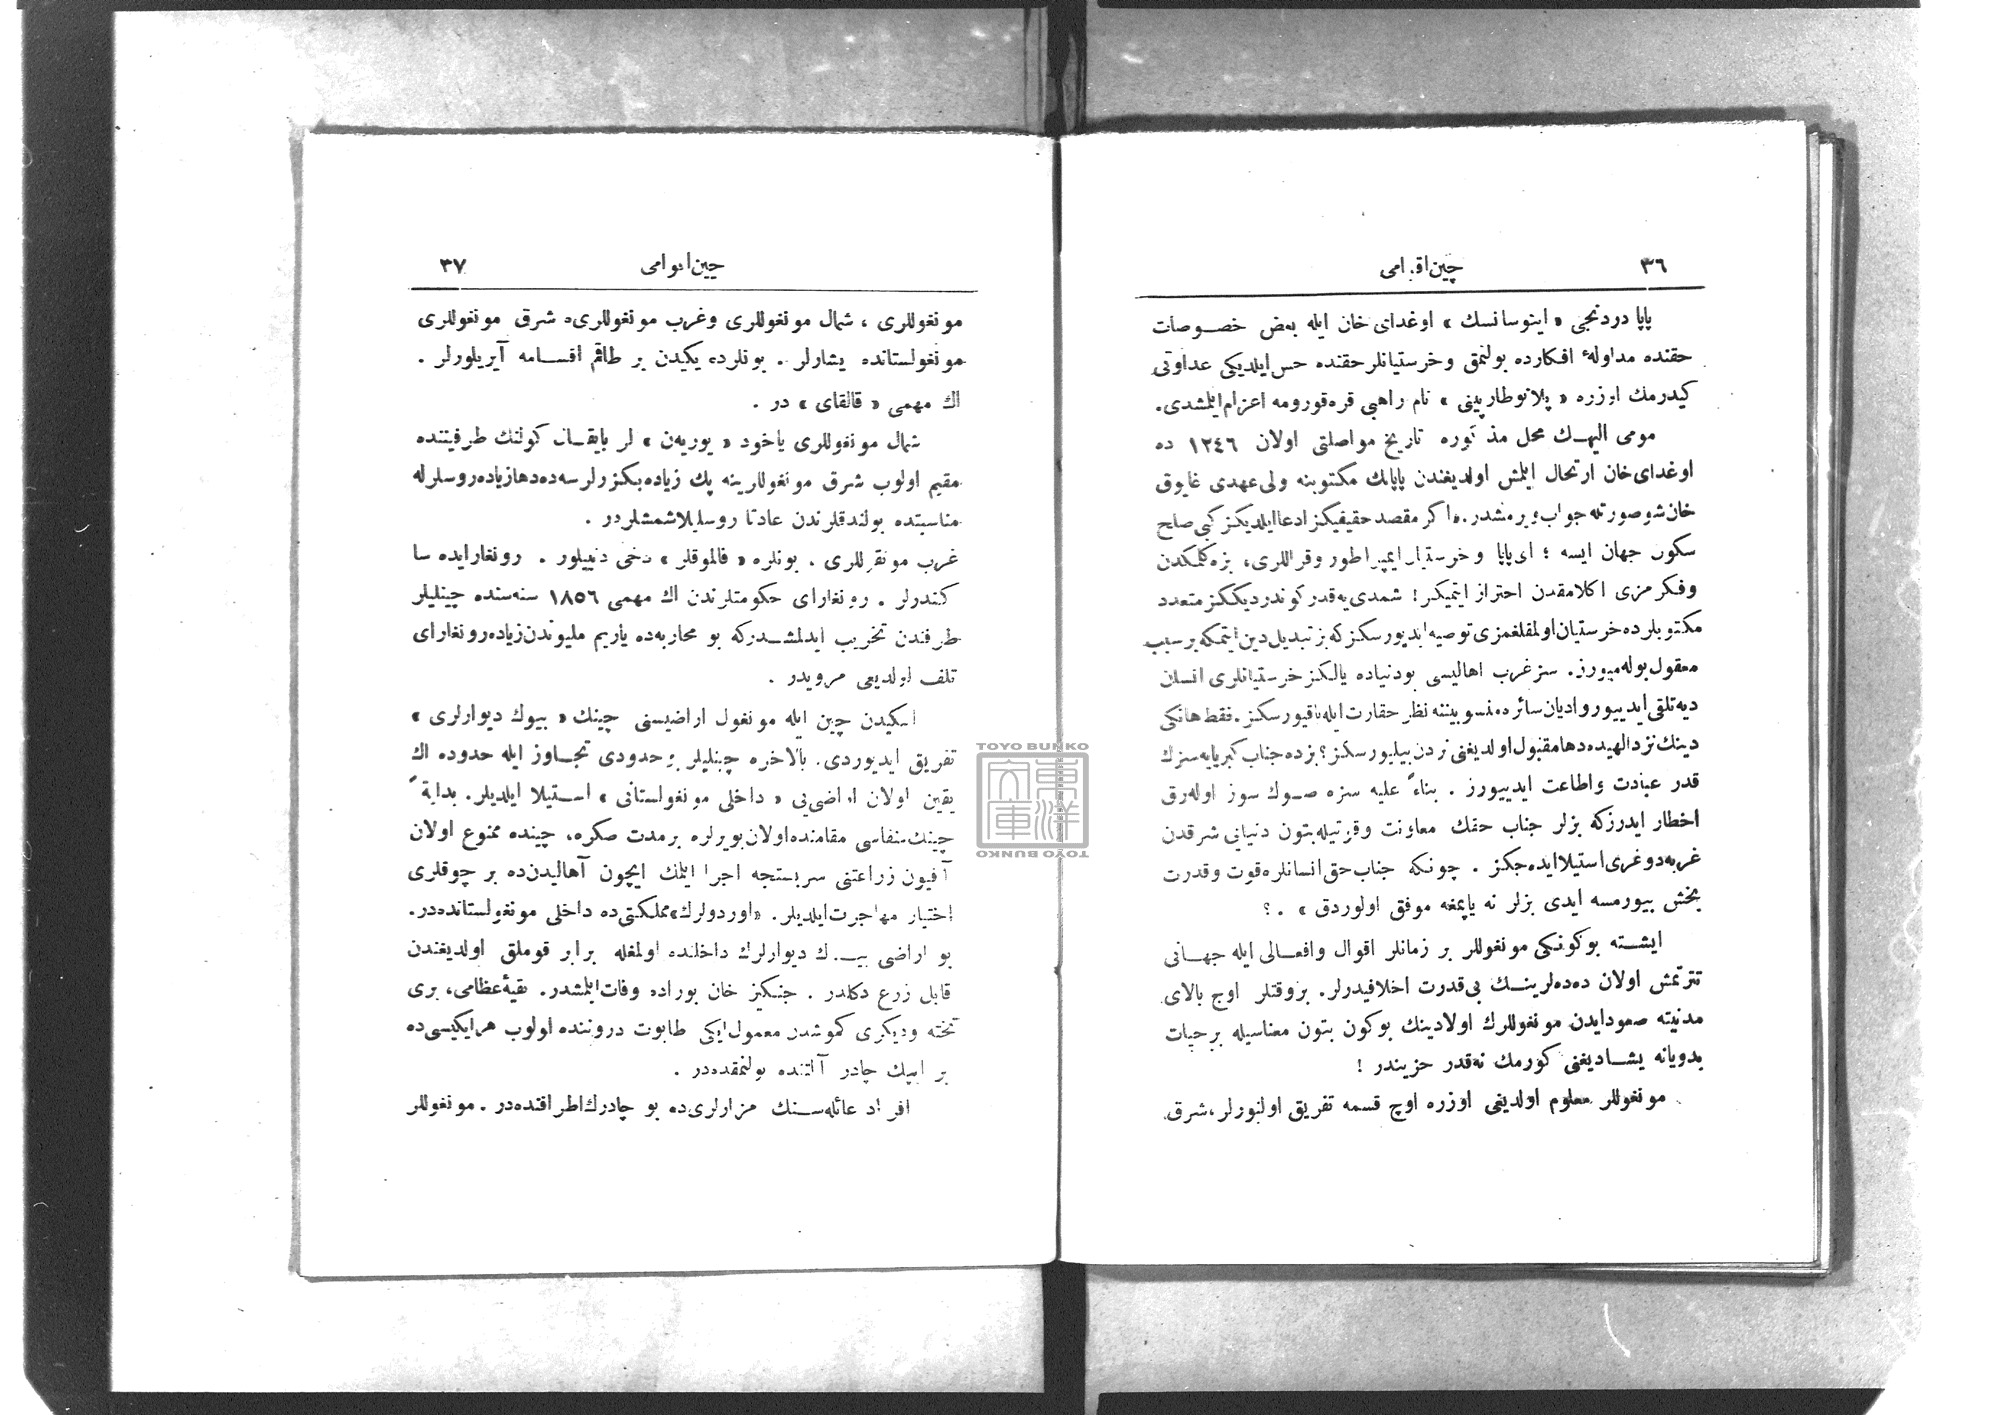 ٣٦
چين اقوامى
پاپا دردنجى « اينوسانسك » اوغداى خان ايله بعض خصوصات
حقنده مداولهٔ افكارده بولنمق و خرستيانلر حقنده حس ايلديكى عداوتى
كيدرمك اوزره « پلانوطارپينى » نام راهبى قره قورومه اعزام ايلمشدى.
مومى اليهك محل مذكوره تاريخ مواصلتى اولان ١٢٤٦ ده
اوغداى خان ارتحال ايلمش اولديغندن پاپانك مكتوبنه ولى عهدى غايوق
خان شو صورتله جواب ويرمشدر. « اكر مقصد حقيقيكز ادعا ايلديكز كبى صلح
سكون جهان ايسه ؛ اى پاپا و خرستيان ايمپراطور و قراللرى، بزه كلمكدن
و فكرمزى اكلامقدن احتراز ايتميكز! شمدى يه قدر كوندرديككز متعدد
مكتوبلرده خرستيان اولمقلغمزى توصيه ايديورسكز كه بز تبديل دين ايتمكه بر سبب
معقول بوله ميورز. سز غرب اهاليسى بو دنياده يالكز خرستيانلرى انسان
ديه تلقى ايدييور و اديان سائره منسوبيننه نظر حقارت ايله باقيورسكز. فقط هانكى
دينك نزد الهيده دها مقبول اولديغنى نردن بيليورسكز؟ بزده جناب كبريايه سزك
قدر عبادت و اطاعت ايدييورز . بناءً عليه سزه صوك سوز اوله رق
اخطار ايدرز كه بزلر جناب حقك معاونت و قوتيله بتون دنيايى شرقدن
غربه دوغرى استيلا ايده جكز . چونكه جناب حق انسانلره قوت و قدرت
بخش بيورمسه ايدى بزلر نه ياپمغه موفق اولوردق » . ؟
ايشته بوكونكى مونغوللر بر زمانلر اقوال و افعالى ايله جهانى
تترتمش اولان ده ده لرينك بى قدرت اخلافيدرلر. بر وقتلر اوج بالاى
مدنيته صعود ايدن مونغوللرك اولادينك بوكون بتون معناسيله بر حيات
بدويانه يشاديغنى كورمك نه قدر حزيندر !
مونغوللر معلوم اولديغى اوزره اوچ قسمه تفريق اولنورلر، شرق
٣٧
چين اقوامى
مونغوللرى ، شمال مونغوللرى و غرب مونغوللرى، شرق مونغوللرى
مونغولستانده يشارلر . بونلرده يكيدن بر طاقم اقسامه آيريلورلر .
اك مهمى « قالقاى » در .
شمال مونغوللرى ياخود « بوريه ن » لر بايقال كولنك طرفيننده
مقيم اولوب شرق مونغوللرينه پك زياده بكزرلرسه ده دها زياده روسلرله
مناسبتده بولندقلرندن عادتا روسليلاشمشلردر .
غرب مونغوللرى . بونلره « قالموقلر » دخى دنييلور . رونغارايده سا
كندرلر . رونغاراى حكومتلرندن اك مهمى ١٨٥٦ سنه سنده چينليلر
طرفندن تخريب ايدلمشدر كه بو محاربه ده ياريم مليوندن زياده رونغاراى
تلف اولديغى مرويدر .
اسكيدن چين ايله مونغول اراضيسنى چينك « بيوك ديوارلرى »
تفريق ايديوردى. بالاخره چينليلر بو حدودى تجاوز ايله حدوده اك
يقين اولان اراضى يى « داخلى مونغولستانى » استيلا ايلديلر. بدايةً
چينك منفاسى مقامنده اولان بو يرلره بر مدت صكره، چينده ممنوع اولان
آفيون زراعتنى سربستجه اجرا ايلك ايچون آهاليدن ده بر چوقلرى
اختيار مهاجرت ايلديلر. « اوردولرك » مملكتى ده داخلى مونغولستانده در.
بو اراضى بيوك ديوارلرك داخلنده اولمغله برابر قوملق اولديغندن
قابل زرع دكلدر . جنكيز خان بوراده وفات ايلمشدر. بقيهٔ عظامى، برى
تخته و ديكرى كموشدن معمول ايكى طابوت دروننده اولوب هر ايكيسى ده
بر ايپك چادر آلتنده بولنمقده در .
افراد عائله سنك مزارلرى ده بو چادرك اطرافنده در . مونغوللر
TOYO BUNKO
東洋文庫
TOYO BUNKO